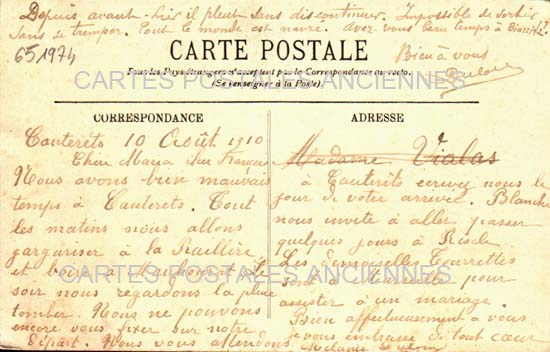 Depuis avant-hier il pleut sans discontinuer. Impossible de sortir
sans se tremper. Tout le monde est navré. Avez-vous beau temps à Biarritz?
651974
CARTE POSTALE
Bien à vous
Tous les Pays étrangers n'acceptent pas la Correspondance au recto.
(Se renseigner à la Poste).
CARTES POSTALES ANCIENNES
CORRESPONDANCE
Cauterêts 10 Août 1910
Chère Maria cher François
Nous avons bien mauvais
temps à Cauterets. Tout
les matins nous allons
gargariser à la Raillère
et boire à Mauhourat. Le
soir nous regardons la pluie
tomber. Nous ne pouvons
encore vous fixer sur notre
départ. Nous vous attendons
ADRESSE
Madame Vialas
à Cauterêts écrivez nous le
jour de votre arrivée. Blanche
nous invite à aller passer
quelques jours à
Les Demoiselles
sont à Marseille pour
assister à un mariage.
Bien affectueusement à vous
vous embrasse de tout cœur
Mélanie
CARTES POSTALES ANCIENNES